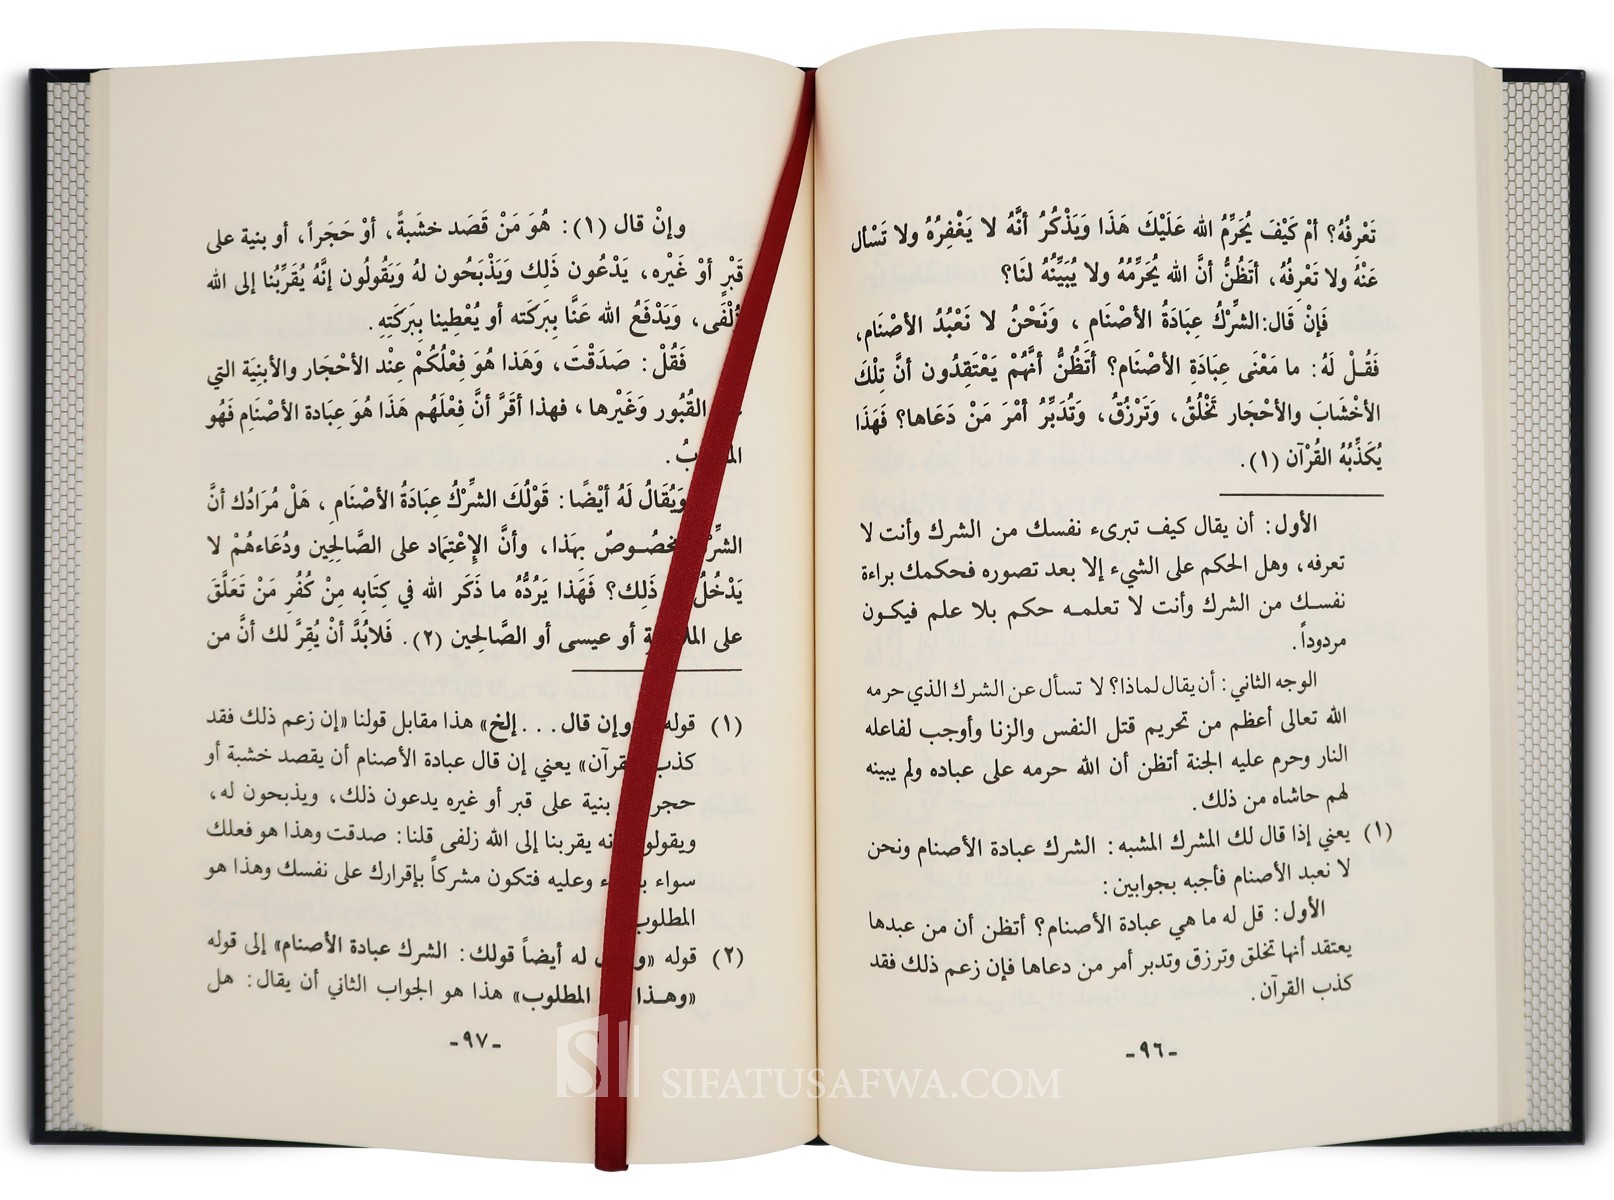 تَعْرِفُهُ؟ أمْ كَيْفَ يُحَرِّمُ الله عَلَيْكَ هَذَا وَيَذْكُرُ أنَّهُ لا يَغْفِرُهُ ولا تَسْأل
عَنْهُ ولا تَعْرِفُهُ، أتَظُنُّ أنَّ الله يُحَرِّمُهُ ولا يُبَيِّنُهُ لنَا؟
فَإنْ قَال:الشِّرْكُ عِبَادَةُ الأصْنَامِ، وَنَحْنُ لا نَعْبُدُ الأصْنَام،
فَقُلْ لَهُ: ما مَعْنَى عِبَادَةِ الأصْنَام؟ أتَظُنُّ أنَّهُمْ يَعْتَقِدُون أنَّ تِلْكَ
الأخْشَابَ والأحْجَار تَخْلُقُ، وَتَرْزُقُ، وَتُدَبِّرُ أمْرَ مَنْ دَعَاها؟ فَهَذَا
يُكَذِّبُهُ القُرْآن (١).
الأول: أن يقال كيف تبرىء نفسك من الشرك وأنت لا
تعرفه، وهل الحكم على الشيء إلا بعد تصوره فحكمك براءة
نفسك من الشرك وأنت لا تعلمه حكم بلا علم فيكون
مردوداً.
الوجه الثاني: أن يقال لماذا؟ لا تسأل عن الشرك الذي حرمه
الله تعالى أعظم من تحريم قتل النفس والزنا وأوجب لفاعله
النار وحرم عليه الجنة أتظن أن الله حرمه على عباده ولم يبينه
لهم حاشاه من ذلك.
(١) يعني إذا قال لك المشرك المشبه: الشرك عبادة الأصنام ونحن
لا نعبد الأصنام فأجبه بجوابين:
الأول: قل له ما هي عبادة الأصنام؟ أتظن أن من عبدها
يعتقد أنها تخلق وترزق وتدبر أمر من دعاها فإن زعم ذلك فقد
كذب القرآن.
-٩٦-
وإنْ قال (١): هُوَ مَنْ قَصَد خشَبةً، أوْ حَجَراً، أو بنية على
قَبْرٍ أوْ غَيْره، يَدْعُون ذَلِكَ وَيَذْبَحُون لهُ وَيَقُولُون إنَّهُ يُقَرِّبُنا إلى الله
زُلْفَى، وَيَدْفَعُ الله عَنَّا بِبَركَته أو يُعْطِينا بِبَركَتِهِ.
فَقُلْ: صَدَقْتَ، وَهَذَا هُوَ فِعْلُكُمْ عِنْد الأحْجَار والأبنِيَة التي
القُبُور وَغَيْرها، فهذا أقَرَّ أنَّ فِعْلَهُم هَذَا هُوَ عِبَادة الأصْنَامِ فَهُو
وَيُقَالُ لَهُ أيْضًا: قَوْلُكَ الشِّرْكُ عِبَادَةُ الأصْنَامِ، هَلْ مُرَادُك أنَّ
الشِّرْكَ مخصُوصٌ بِهَذا، وأنَّ الإعْتِمَاد على الصَّالِحِين ودُعَاءهُمْ لا
يَدْخُلُ ذَلِك؟ فَهَذا يَرُدُّهُ ما ذَكَر الله في كِتَابِه مِنْ كُفُرِ مَنْ تَعَلَّقَ
على الملائكةِ أو عيسى أو الصَّالِحِين (٢). فَلابُدَّ أنْ يُقِرَّ لك أنَّ من
(١) قوله «وإن قال... إلخ» هذا مقابل قولنا «إن زعم ذلك فقد
كذب القرآن» يعني إن قال عبادة الأصنام أن يقصد خشبة أو
حجر بنية على قبر أو غيره يدعون ذلك، ويذبحون له،
ويقولون إنه يقربنا إلى الله زلفى قلنا: صدقت وهذا هو فعلك
سواء وعليه فتكون مشركاً بإقرارك على نفسك وهذا هو
المطلوب
(٢) قوله له أيضاً قولك: الشرك عبادة الأصنام» إلى قوله
«وهذا المطلوب» هذا هو الجواب الثاني أن يقال: هل
-٩٧-
SIFATUSAFWA.COM